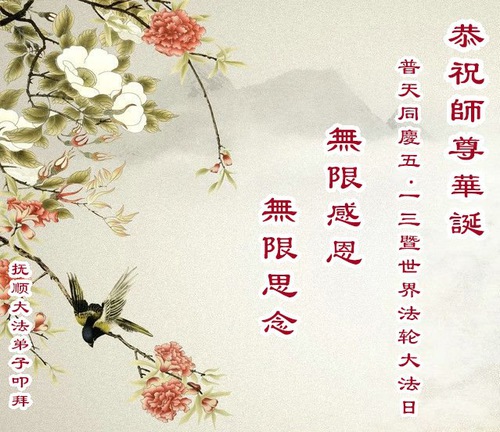 恭祝師尊華誕
普天同慶五·一三暨世界法轮大法日
無限感恩
無限思念
抚顺大法弟子叩拜